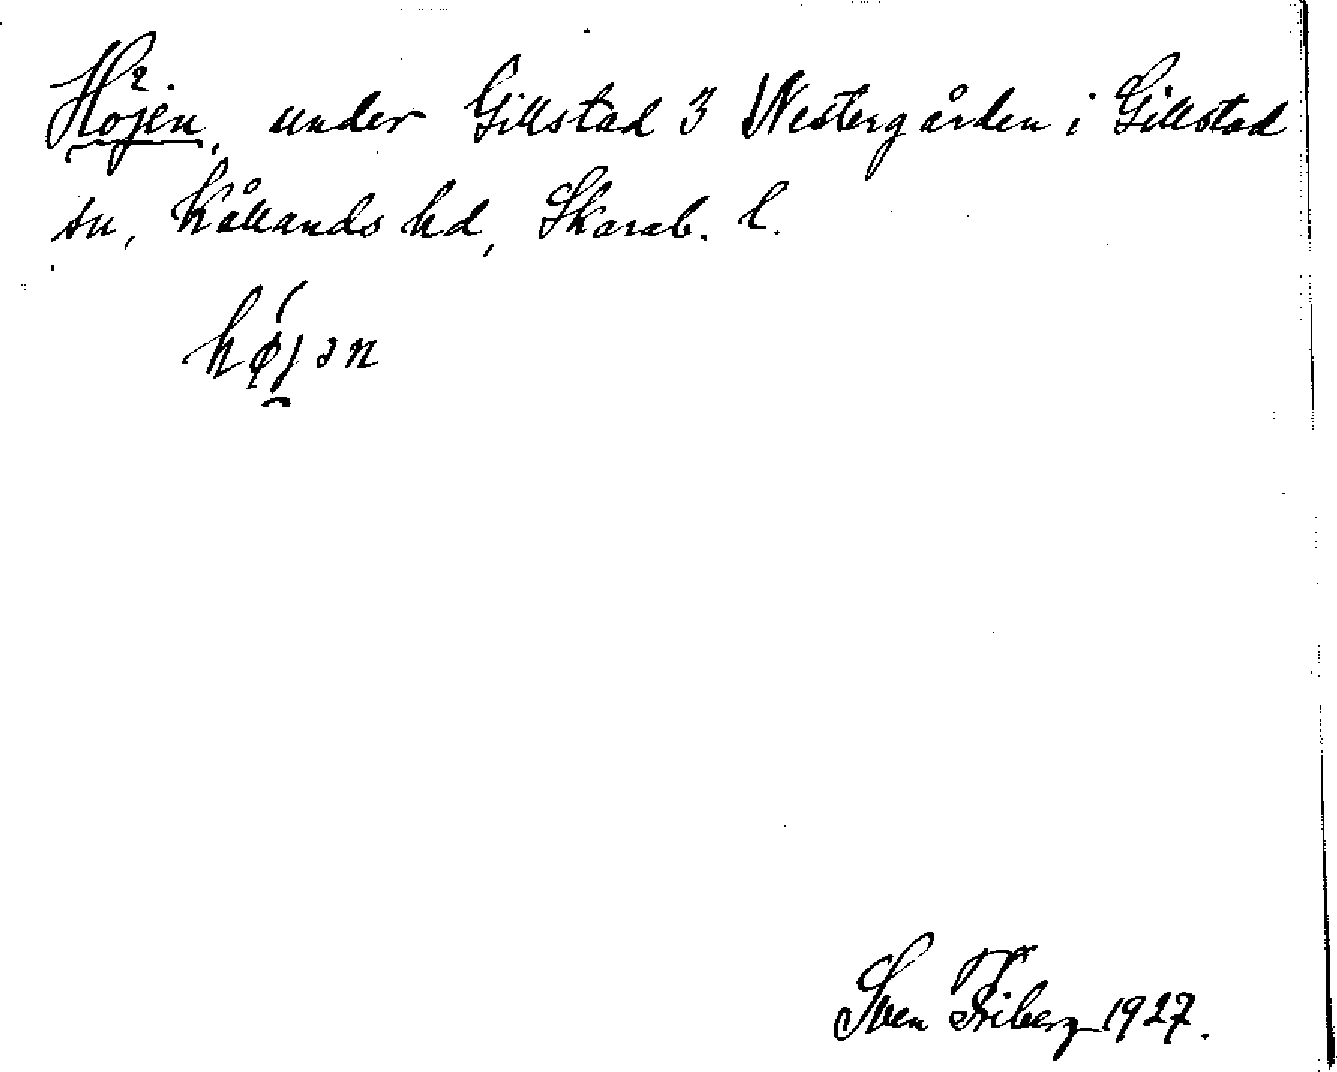 Höjen, under Gillstad 3 Westergården i Gillstad
sn, Kållands hd, Skarab. l.
højən
Sven Friberg 1927.